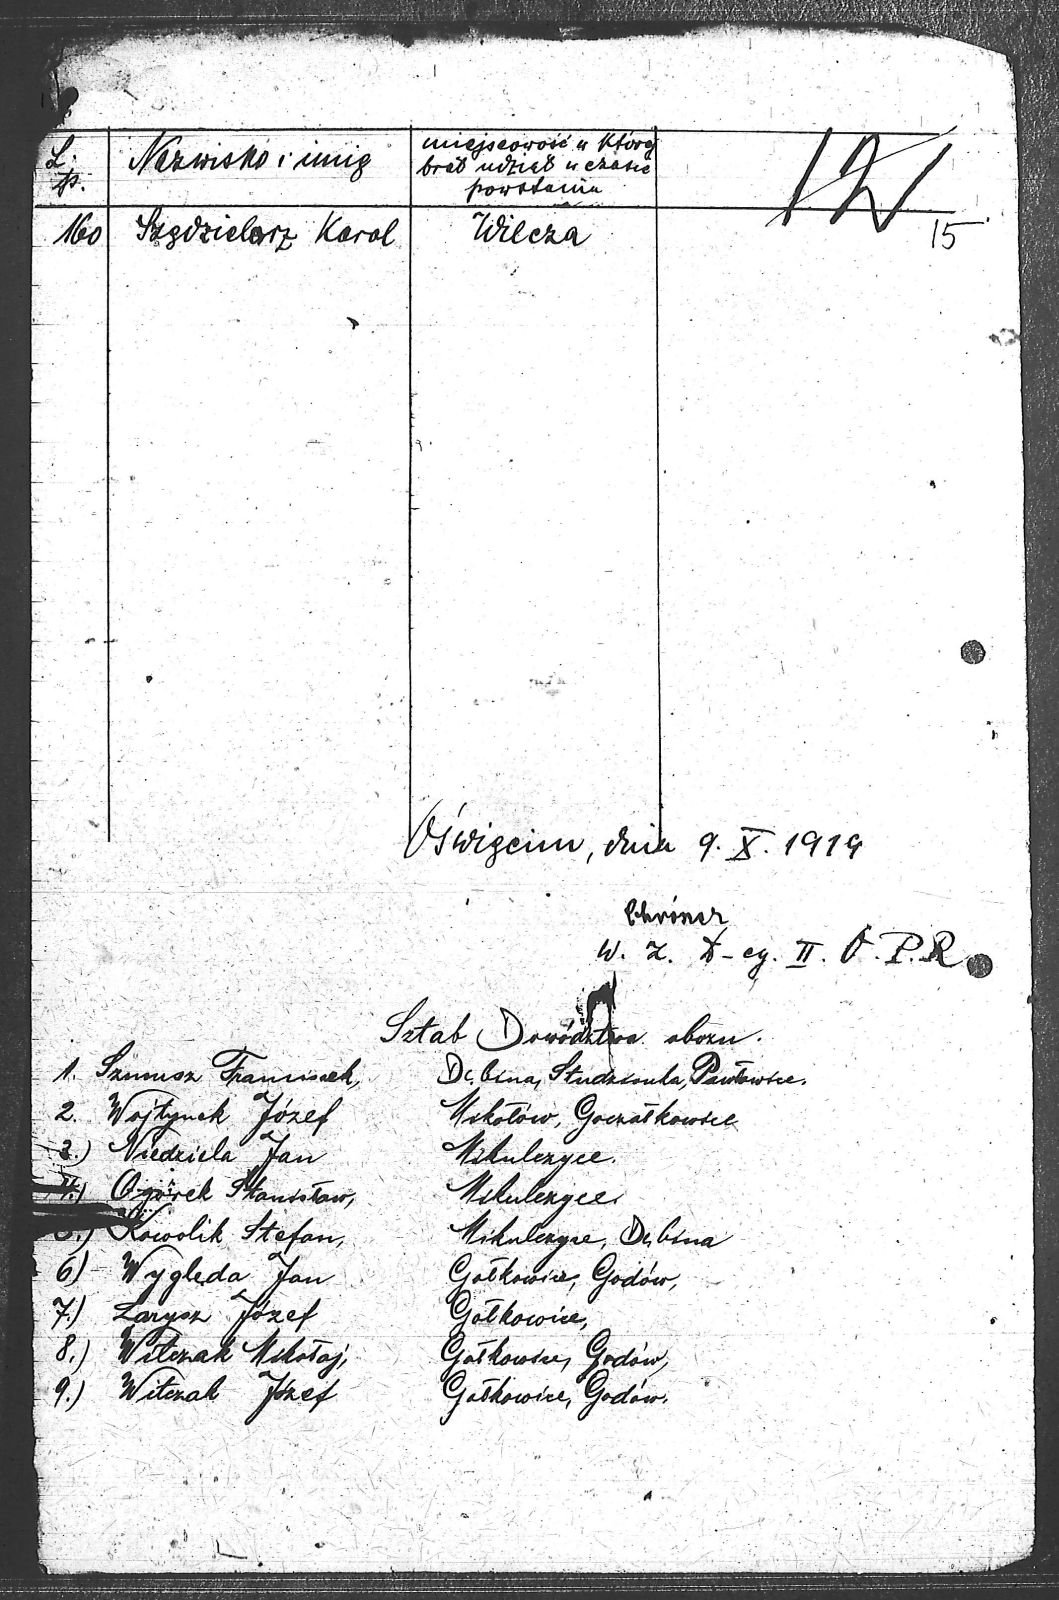 L. p. Nazwisko i imię miejscowość w której brał udział w czasie powstania
12
15
160 Szędzielorz Karol Wilcza
Oświęcim, dnia 9. X. 1919
W. Z. D-cy. II. O. P. R.
Sztab Dowództwa obozu.
1. Szmusz Franciszek, Dębina, Studzionka, Pawłowice.
2. Wojtynek Józef Mikołów, Goczałkowice
3.) Niedziela Jan Mikulczyce.
4.) Ogórek Stanisław, Mikulczyce.
5.) Kowolik Stefan, Mikulczyce, Dębina
6) Wyględa Jan Gołkowice, Godów,
7.) Larysz Józef Gołkowice,
8.) Witczak Mikołaj, Gołkowice, Godów,
9.) Witczak Józef Gołkowice, Godów.